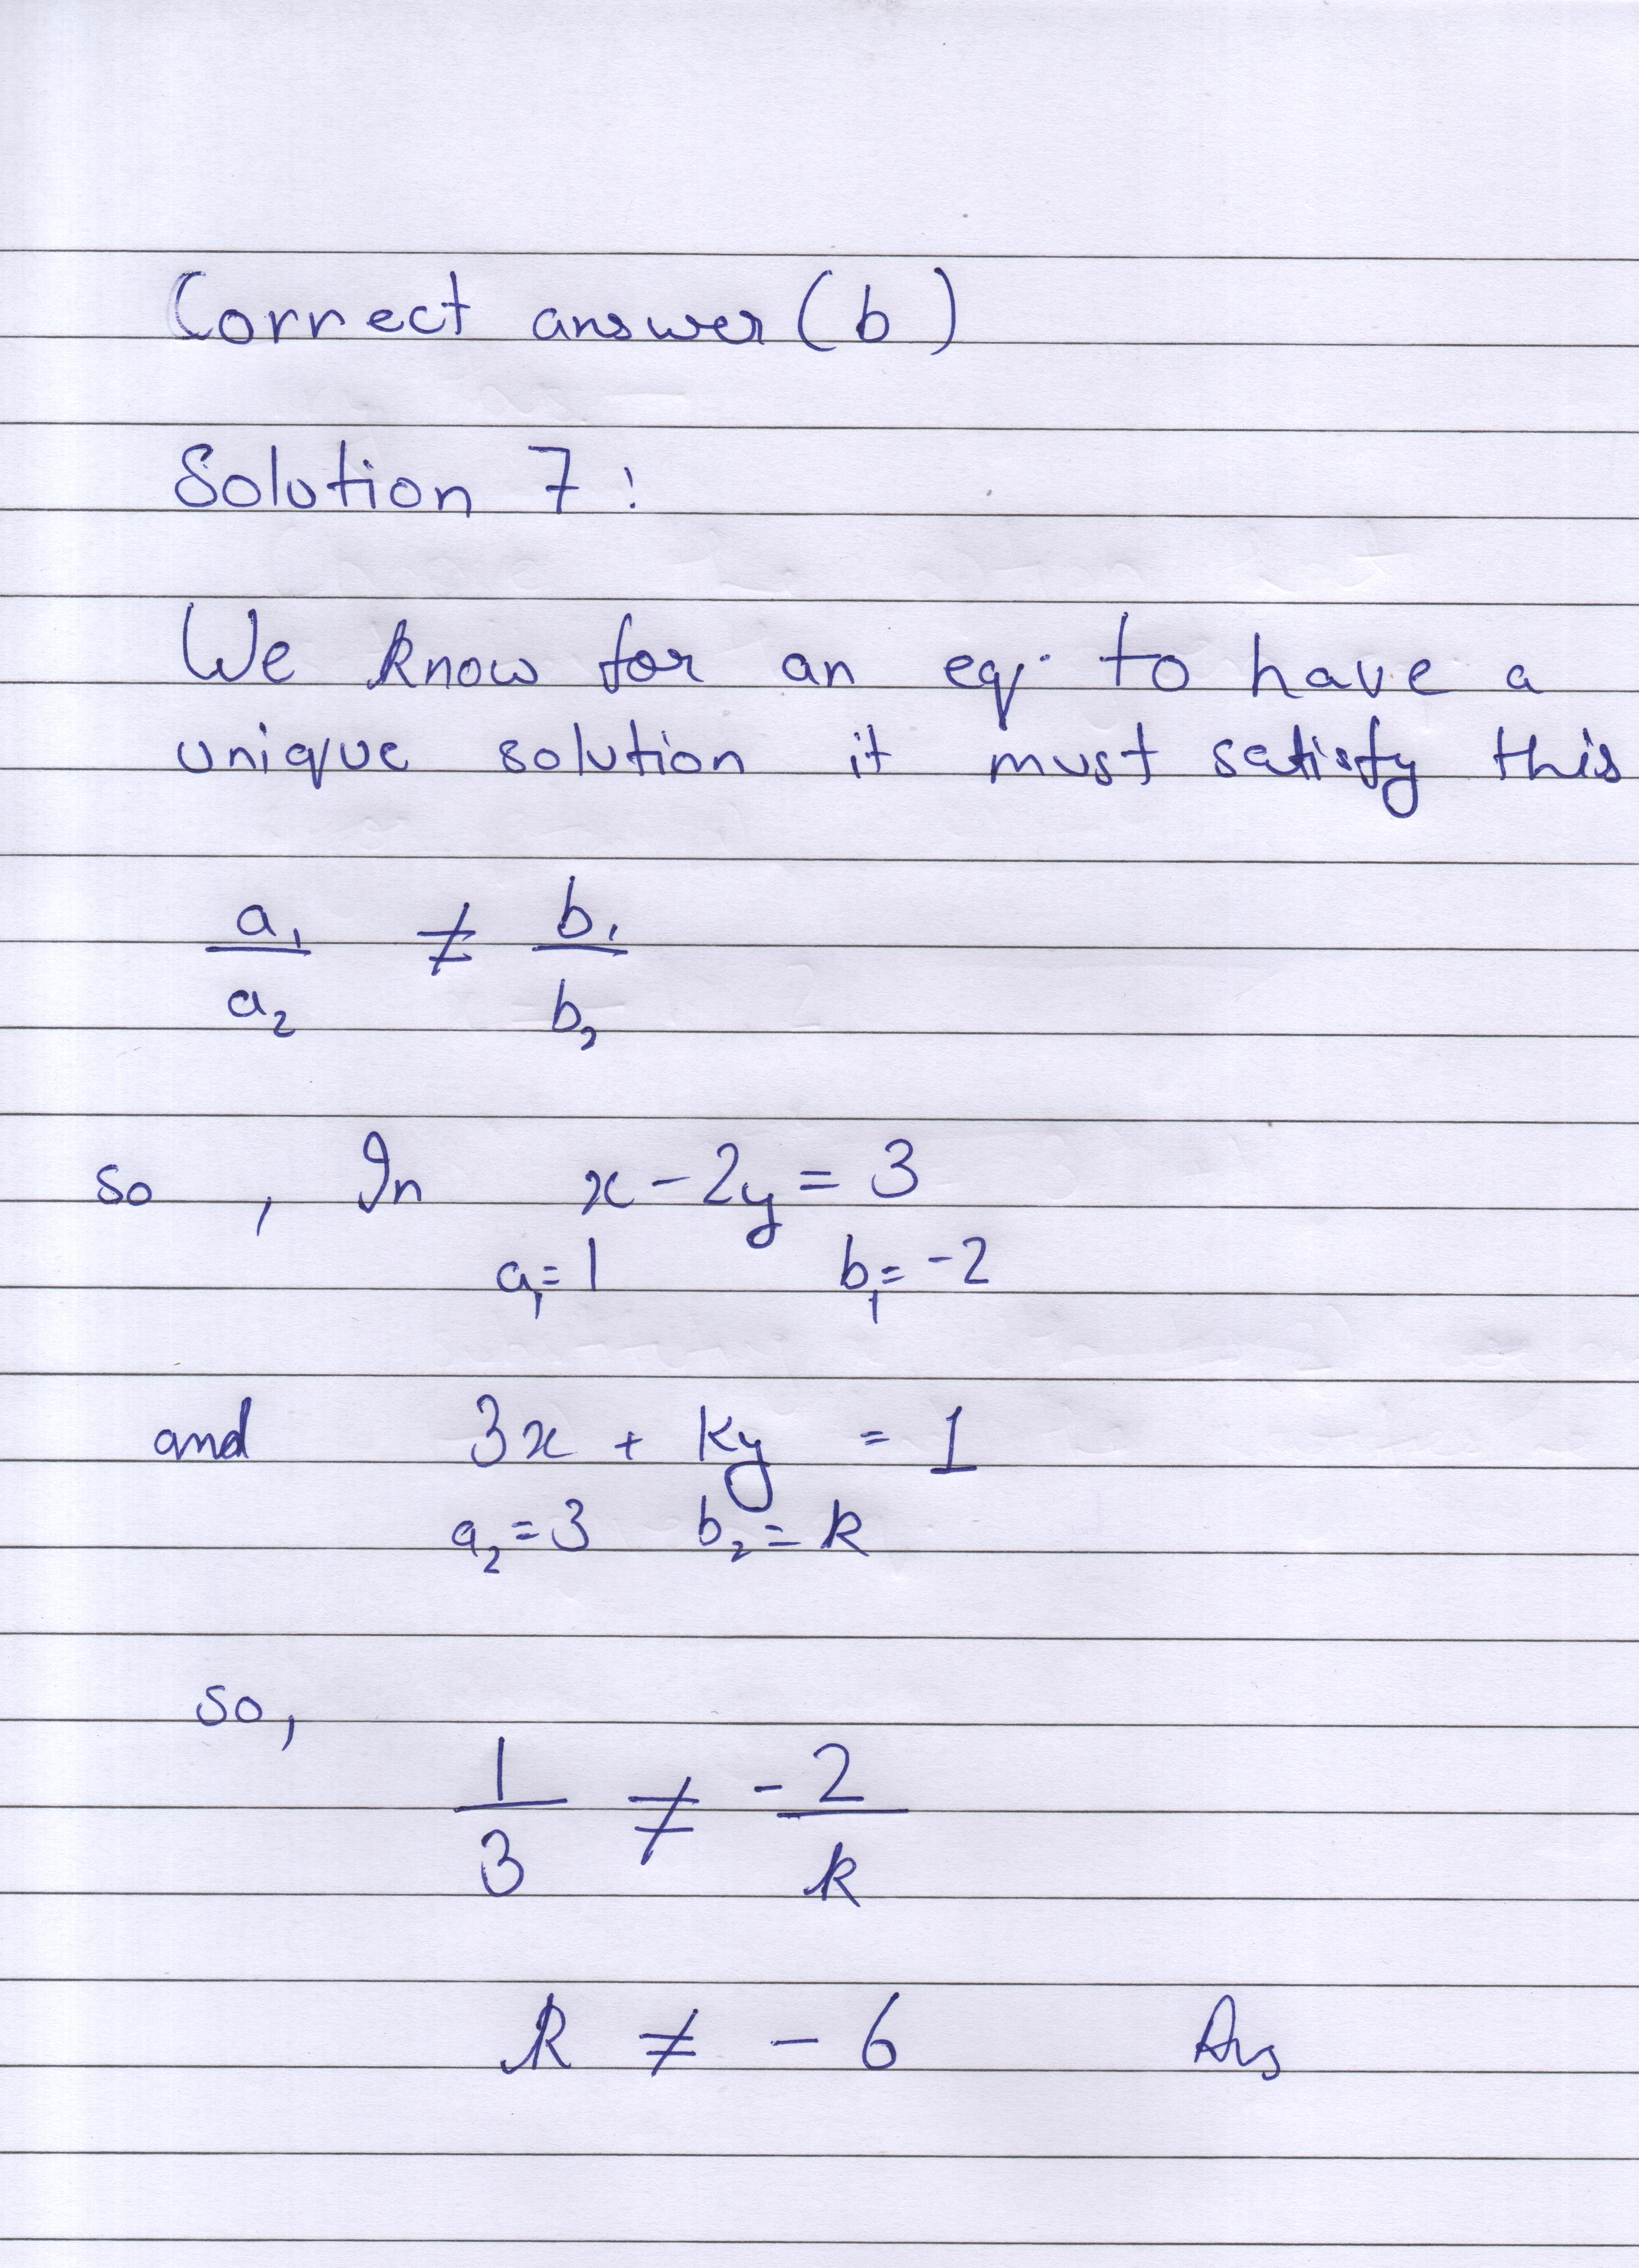 Correct answer (b)
Solution 7:
We know for an eq. to have a
unique solution it must satisfy this
a₁/a₂ ≠ b₁/b₂
so, In x - 2y = 3
a₁ = 1 b₁ = -2
and 3x + ky = 1
a₂ = 3 b₂ = k
so,
1/3 ≠ -2/k
k ≠ - 6 Ans